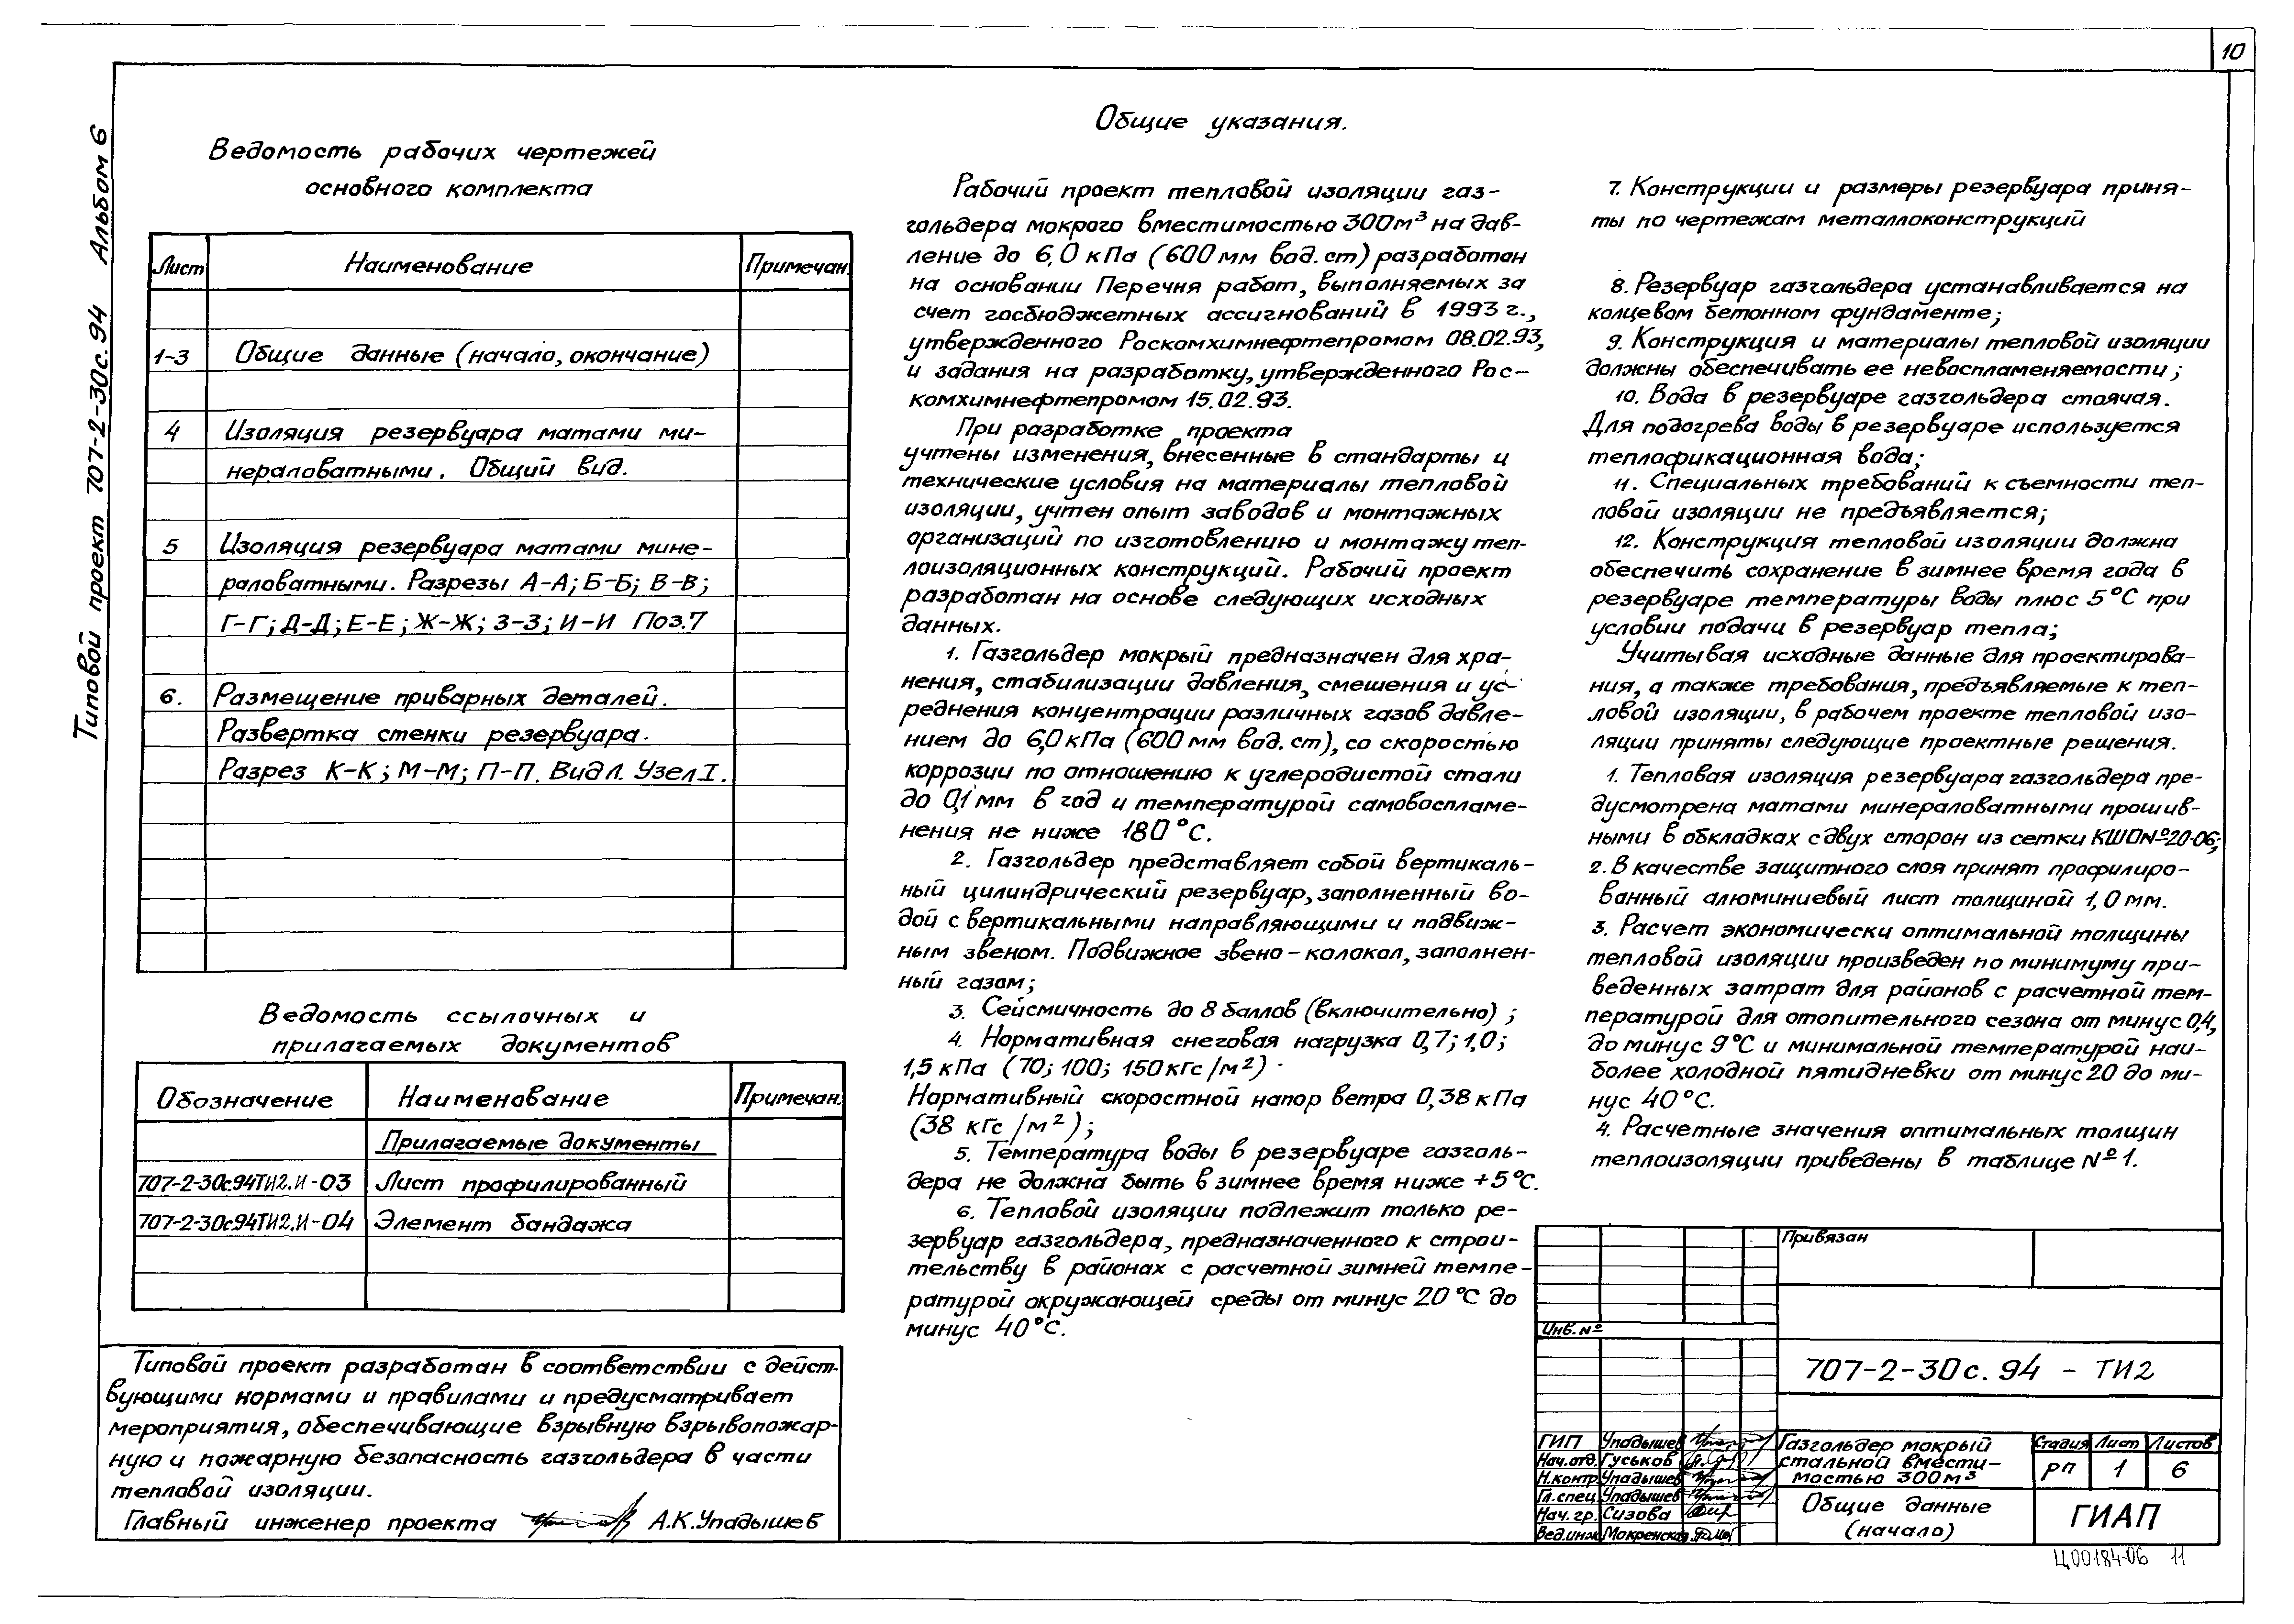 10
Типовой проект 707-2-30с.94 Альбом 6
Ведомость рабочих чертежей
основного комплекта
Лист Наименование Примечан.
1-3 Общие данные (начало, окончание)
4 Изоляция резервуара матами ми-
нераловатными. Общий вид.
5 Изоляция резервуара матами мине-
раловатными. Разрезы А-А; Б-Б; В-В;
Г-Г; Д-Д; Е-Е; Ж-Ж; З-З; И-И Поз.7
6. Размещение приварных деталей.
Развертка стенки резервуара.
Разрез К-К; М-М; П-П. Вид Л. Узел I.
Ведомость ссылочных и
прилагаемых документов
Обозначение Наименование Примечан.
Прилагаемые документы
707-2-30с94ТИ2.И-03 Лист профилированный
707-2-30с94ТИ2.И-04 Элемент бандажа
Типовой проект разработан в соответствии с дейст-
вующими нормами и правилами и предусматривает
мероприятия, обеспечивающие взрывную взрывопожар-
ную и пожарную безопасность газгольдера в части
тепловой изоляции.
Главный инженер проекта А.К.Упадышев
Общие указания.
Рабочий проект тепловой изоляции газ-
гольдера мокрого вместимостью 300м³ на дав-
ление до 6,0 кПа (600 мм вод. ст) разработан
на основании Перечня работ, выполняемых за
счет госбюджетных ассигнований в 1993 г.,
утвержденного Роскомхимнефтепромом 08.02.93,
и задания на разработку, утвержденного Рос-
комхимнефтепромом 15.02.93.
При разработке проекта
учтены изменения, внесенные в стандарты и
технические условия на материалы тепловой
изоляции, учтен опыт заводов и монтажных
организаций по изготовлению и монтажу теп-
лоизоляционных конструкций. Рабочий проект
разработан на основе следующих исходных
данных.
1. Газгольдер мокрый предназначен для хра-
нения, стабилизации давления, смешения и ус-
реднения концентрации различных газов давле-
нием до 6,0 кПа (600 мм вод. ст), со скоростью
коррозии по отношению к углеродистой стали
до 0,1 мм в год и температурой самовоспламе-
нения не ниже 180°С.
2. Газгольдер представляет собой вертикаль-
ный цилиндрический резервуар, заполненный во-
дой с вертикальными направляющими и подвиж-
ным звеном. Подвижное звено - колокол, заполнен-
ный газом;
3. Сейсмичность до 8 баллов (включительно);
4. Нормативная снеговая нагрузка 0,7; 1,0;
1,5 кПа (70; 100; 150 кгс/м²).
Нормативный скоростной напор ветра 0,38 кПа
(38 кгс/м²);
5. Температура воды в резервуаре газголь-
дера не должна быть в зимнее время ниже +5°С.
6. Тепловой изоляции подлежит только ре-
зервуар газгольдера, предназначенного к строи-
тельству в районах с расчетной зимней темпе-
ратурой окружающей среды от минус 20°С до
минус 40°С.
7. Конструкции и размеры резервуара приня-
ты по чертежам металлоконструкций
8. Резервуар газгольдера устанавливается на
колцевом бетонном фундаменте;
9. Конструкция и материалы тепловой изоляции
должны обеспечивать ее невоспламеняемости;
10. Вода в резервуаре газгольдера стоячая.
Для подогрева воды в резервуаре используется
теплофикационная вода;
11. Специальных требований к съемности теп-
ловой изоляции не предъявляется;
12. Конструкция тепловой изоляции должна
обеспечить сохранение в зимнее время года в
резервуаре температуры воды плюс 5°С при
условии подачи в резервуар тепла;
Учитывая исходные данные для проектирова-
ния, а также требования, предъявляемые к теп-
ловой изоляции, в рабочем проекте тепловой изо-
ляции приняты следующие проектные решения.
1. Тепловая изоляция резервуара газгольдера пре-
дусмотрена матами минераловатными прошив-
ными в обкладках с двух сторон из сетки КШОN°20-06;
2. В качестве защитного слоя принят профилиро-
ванный алюминиевый лист толщиной 1,0 мм.
3. Расчет экономически оптимальной толщины
тепловой изоляции произведен по минимуму при-
веденных затрат для районов с расчетной тем-
пературой для отопительного сезона от минус 0,4,
до минус 9°С и минимальной температурой наи-
более холодной пятидневки от минус 20 до ми-
нус 40°С.
4. Расчетные значения оптимальных толщин
теплоизоляции приведены в таблице №1.
Привязан
Инв. №
707-2-30с.94 - ТИ2
ГИП Упадышев
Нач.отд. Гуськов
Н.контр. Упадышев
Гл.спец. Упадышев
Нач.гр. Сизова
Вед.инж. Мокренская
Газгольдер мокрый
стальной вмести-
мостью 300м³
Стадия Лист Листов
РП 1 6
Общие данные
(начало)
ГИАП
Ц00184-06 11